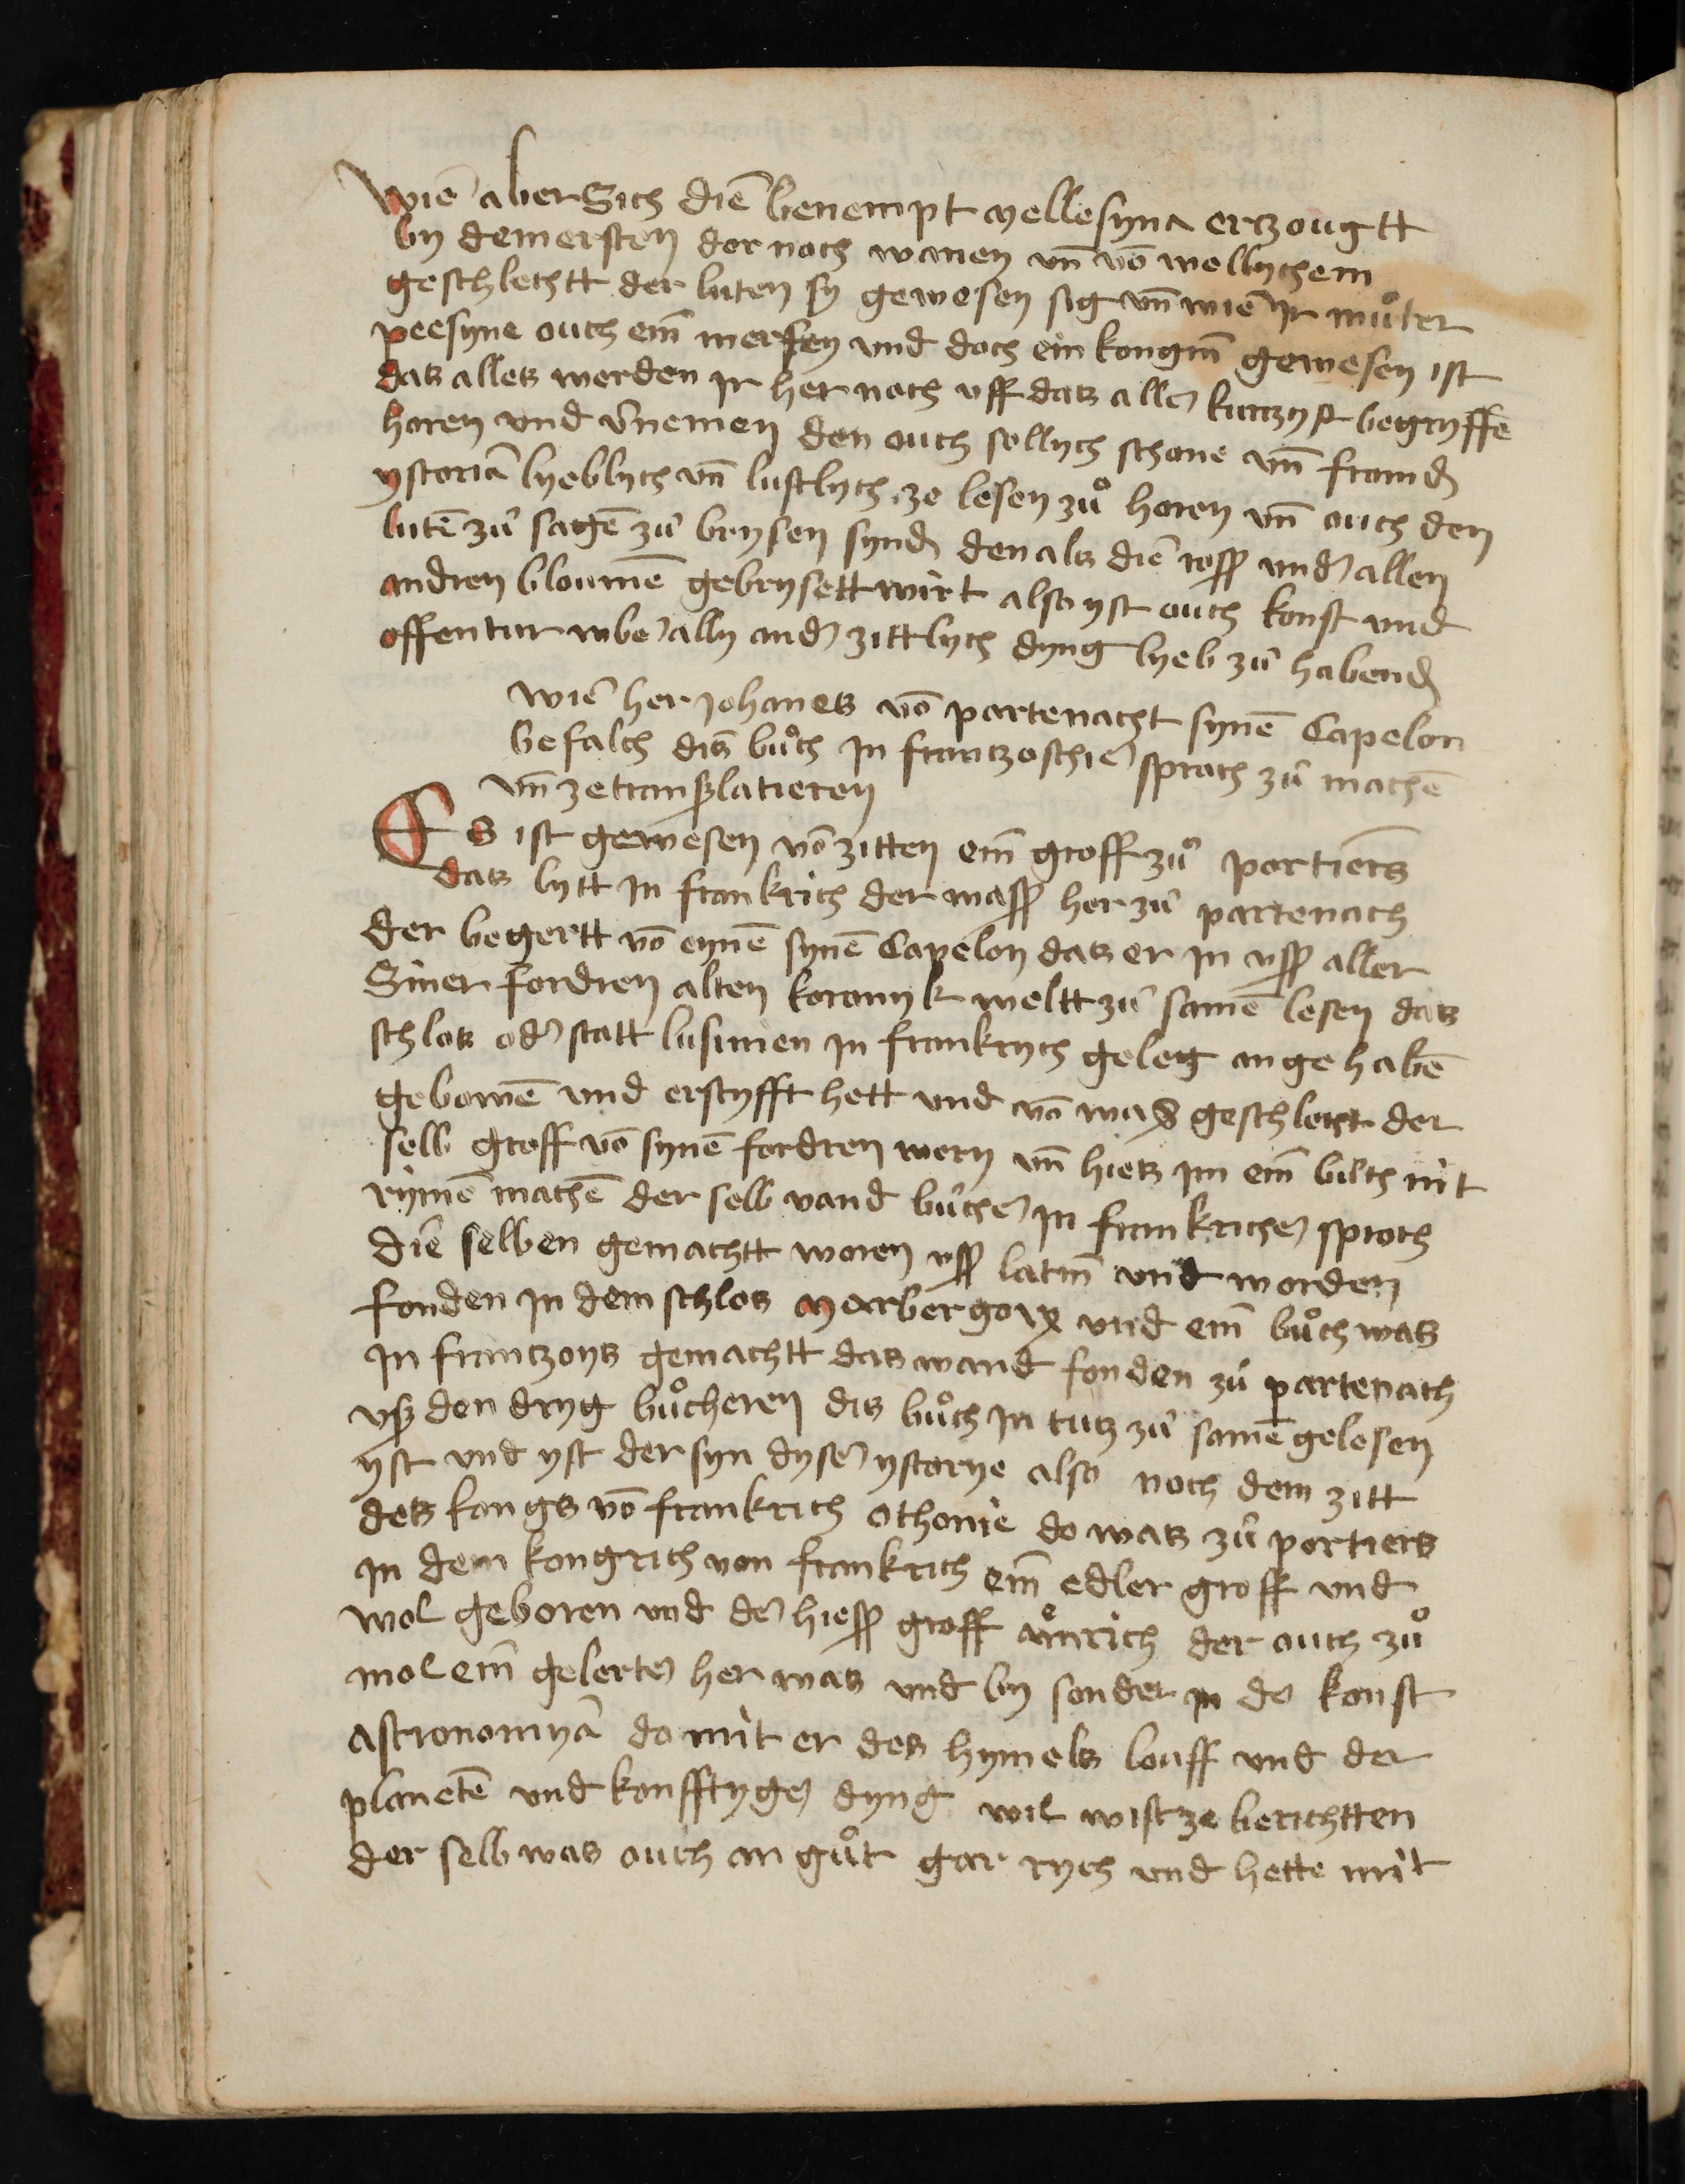 wie aber Sich die benempt mellesyna erzougtt
by dem ersten dor noch wanen vn̄ vō wellychem
geschlechtt der luten sy gewesen sig vn̄ wie Ir můter
peesyne ouch ein̄ merfey und doch ein kongin̄ gewesen ist
das alles werden ir her noch uff das aller kurczyst begryffē
horen und v̄nemen den ouch sollych schone vn̄ fromd
ystoriā lyeblych vn̄ lustlych ze lesen zů horen vn̄ ouch den
lutē zů sagē zů brysen synd den als die ross und͛ allen
andren bloumē gebrysett wirt also yst ouch konst und
offentur wbe͛ ally and͛ zittlych dyng lyeb zů habend
wie her Johanes vō partenacht synē Capelon
befalch dis bůch In frantzoschie͛ sproch zů machē
vn̄ ze transzlatieren
Es ist gewesen vō zitten ein̄ groff zů portiers
das lytt In frankrich der wass her zů partenach
der begertt vō eynē synē Capelon das er In uss aller
Siner fordren alten koronyk weltt zů samē lesen das
schlos od͛ statt lusinien In frankrych geleg angehabē
gebowē und erstyfft hett und vō was geschlecht der
selb groff vō synē fordren wery vn̄ hies im ein̄ buch mit
rymē machē der selb vand bůche͛ In frankriche͛ sproch
die selben gemachtt woren uss latin̄ und worden
fonden In dem schlos marbergow und ein̄ bůch was
In frantzoys gemachtt das ward fonden zů partenach
usz den dryg bůcheren dis bůch In tutz zů samē gelesen
yst und yst der syn dyse͛ ystorye also noch dem zitt
des kongs vō frankrich othonie do was zů portiers
In dem kongrich von frankrich ein̄ edler groff und
wol geboren und de͛ hiess groff aͤmrich der ouch zů
mol ein̄ gelerte͛ her was und by sonder in de͛ konst
astronomyā do mit er des hymels louff und der
planetē und konfftyge͛ dyng wil wist ze berichtten
der selb was ouch an gůt gar rych und hette mit